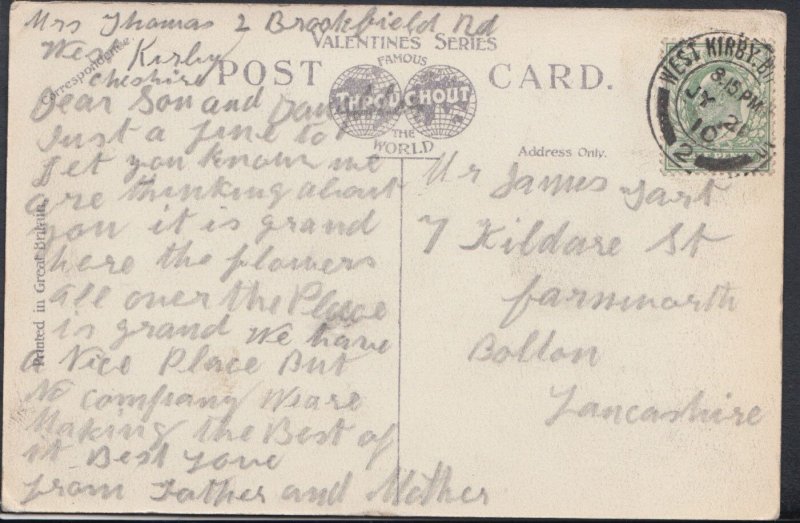 Mrs Thomas 2 Brookfield Rd
West Kirby
Cheshire
Correspondence.
VALENTINES SERIES
FAMOUS
THROUGHOUT
THE
WORLD
POST CARD.
Dear Son and
Just a line to
let you know we
are thinking about
you it is grand
here the flowers
all over the Place
is grand We have
a Nice Place But
No company We are
Making the Best of
it Best Love
from Father and Mother
Printed in Great Britain.
Address Only.
Mr James Tart
7 Kildare St
farnworth
Bolton
Lancashire
WEST KIRBY
8.15 PM
JY 21
10
2